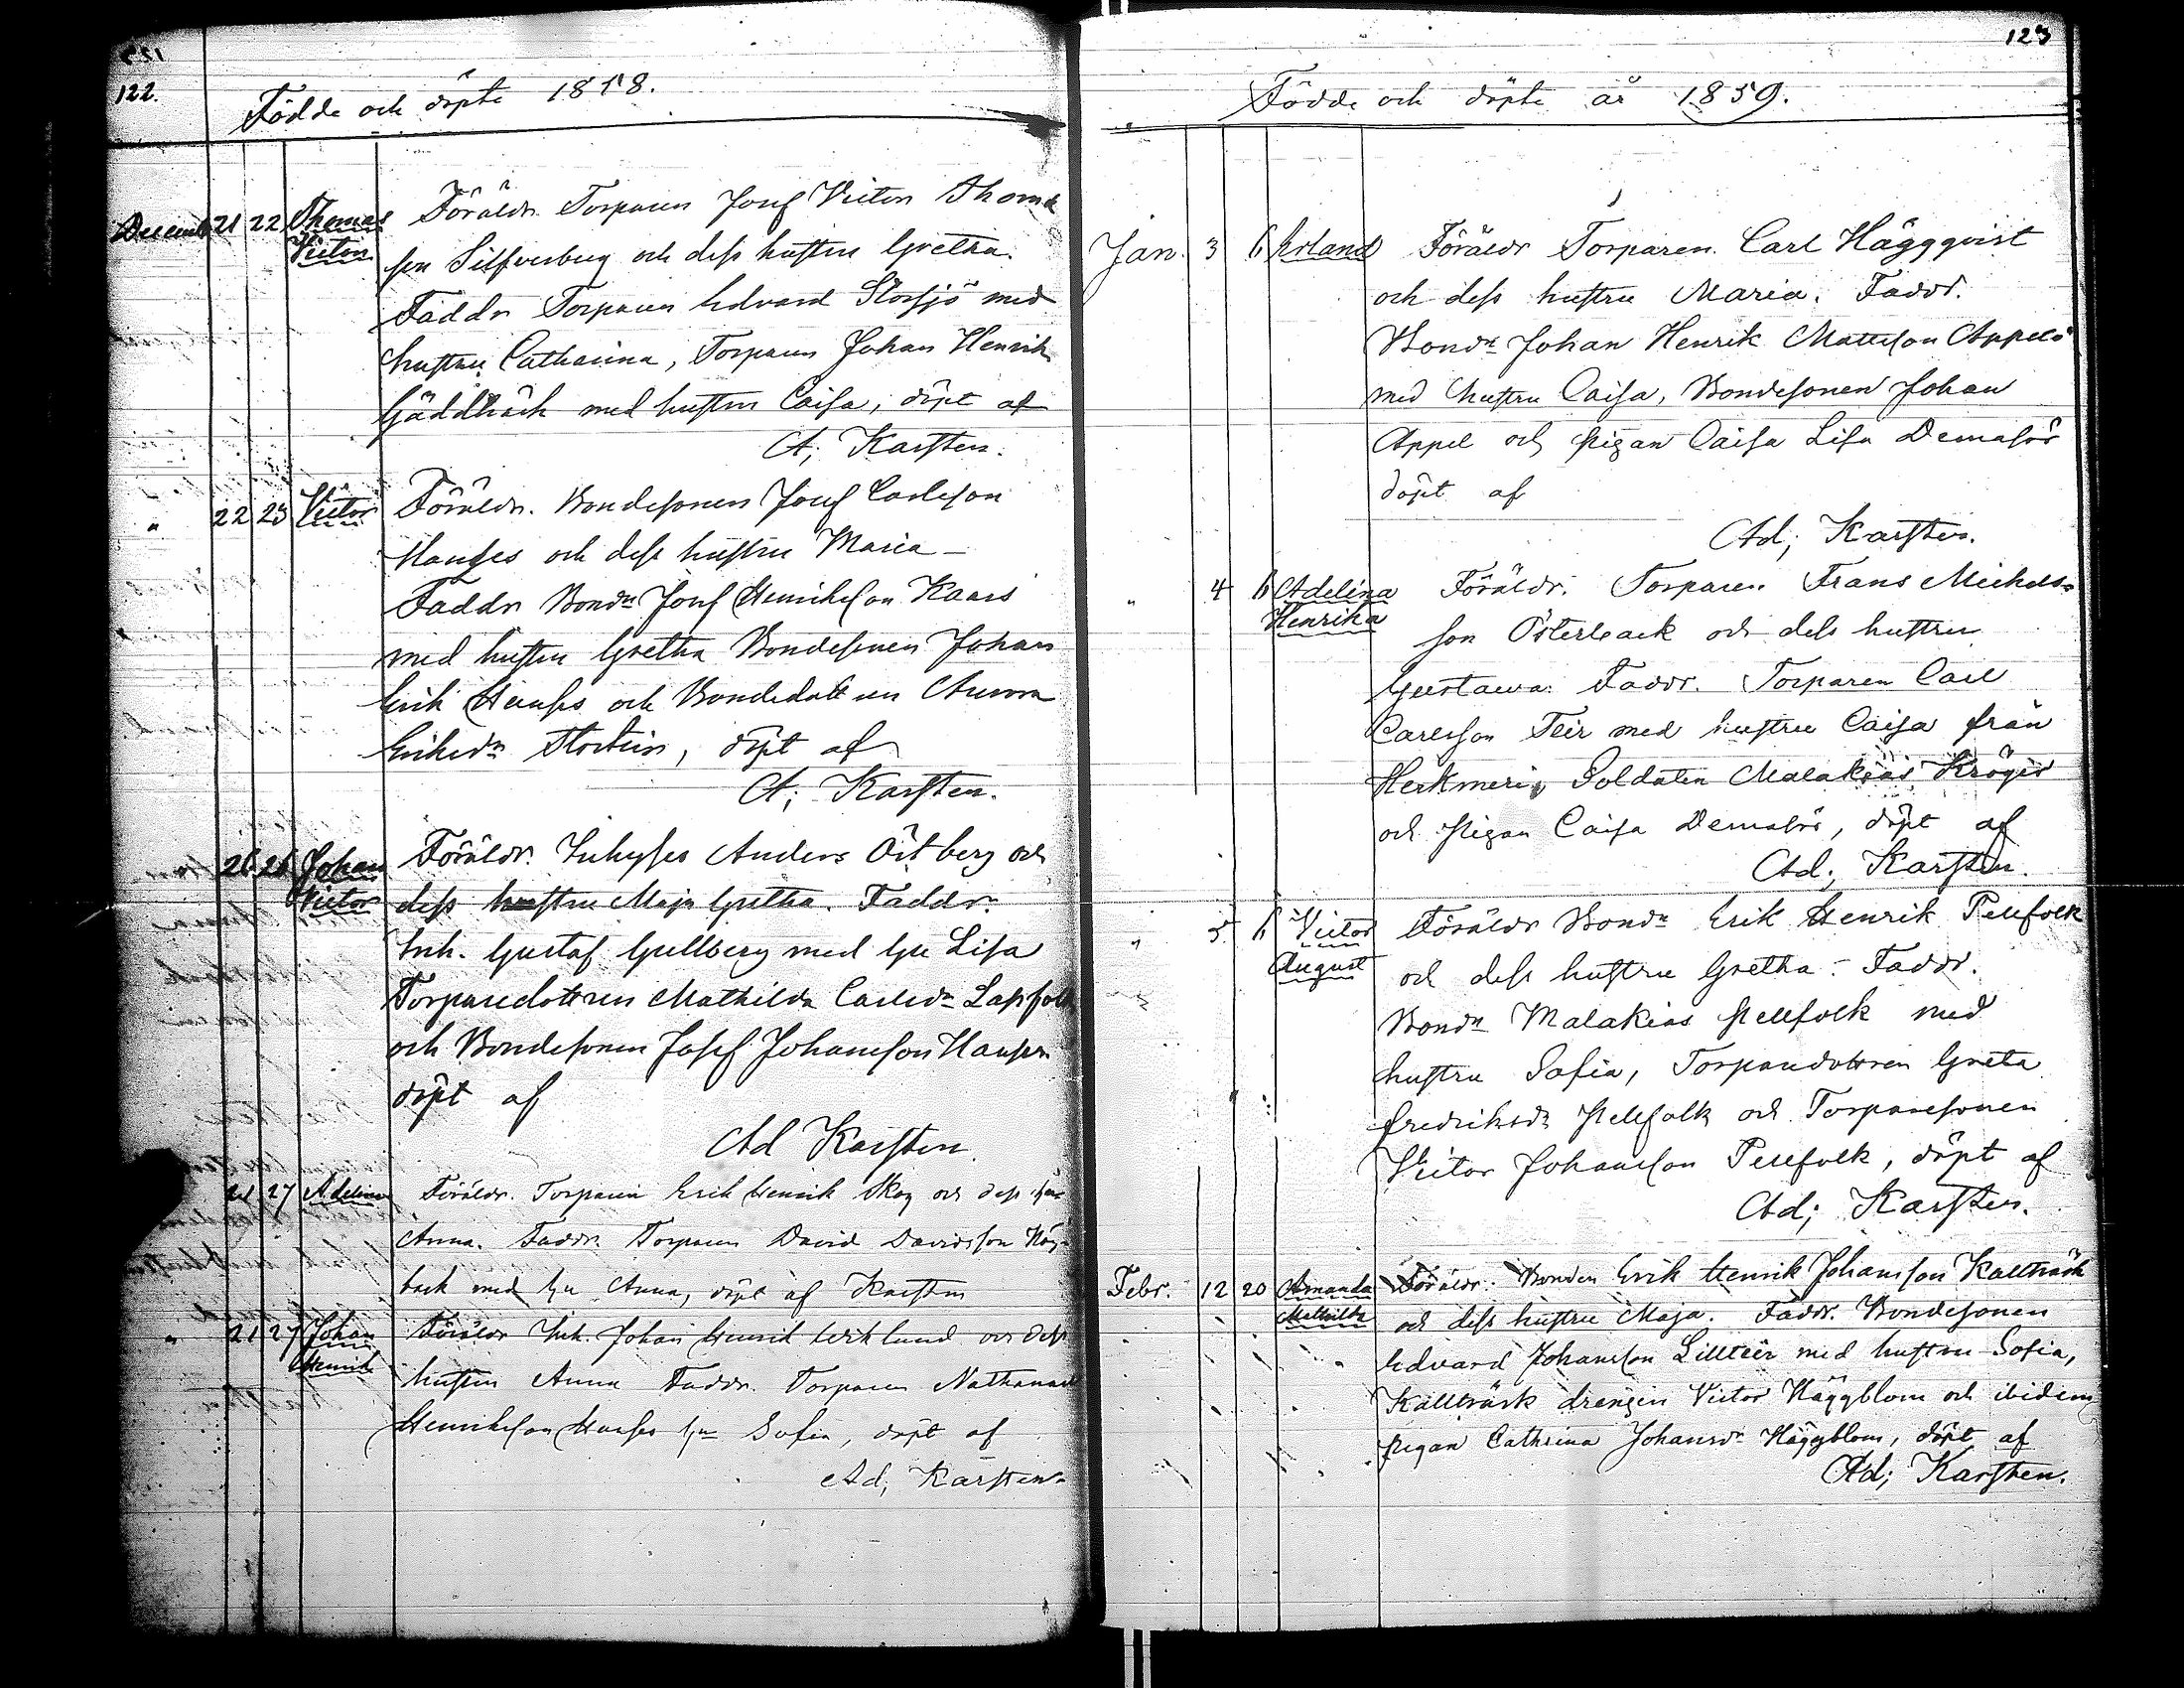 122.
Födde och döpte 1858.
Decemb 21 22 Thomas Victor
Föräldr. Torparen Josef Victor Thoms
son Silfverberg och dess hustru Gretha.
Faddr Torparen Edvard Storsjö med
hustru Catharina, Torparen Johan Henrik
Gäddbäck med hustru Caisa, döpt af
A; Karsten.
" 22 23 Victor
Föräldr. Bondesonen Josef Carlsson
och dess hustru Maria –
Faddr Bondn Josef Henriksson Kaars
med hustru Gretha Bondesonen Johan
Erik och Bondedottren Aurora
Eriksdr döpt af
A; Karsten.
26 Johan Victor
Föräldr. Inhyses Anders Östberg och
dess hustru Maja Gretha. Faddr.
Inh. Gustaf Gullberg med hu Lisa
Torparedottren Mathilda Carlsdr Lapfolk
och Bondesonen Josef Johansson
döpt af
Ad Karsten.
21 27 Adelina
Föräldr. Torparen Erik Henrik Skog och dess hu
Anna. Faddr. Torparen David Davidsson Hög-
back med hu Anna, döpt af Karsten
" 21 27 Johan Henrik
Föräldr Inh. Johan Henrik och dess
hustru Anna Faddr. Torparen Nathanael
Henriksson hu Sofia, döpt af
Ad; Karsten.
123
Födde och döpte år 1859.
Jan. 3 6 Erland
Föräldr Torparen Carl Häggqvist
och dess hustru Maria. Faddr.
Bondn Johan Henrik Mattsson Appelö
med hustru Caisa, Bondesonen Johan
Appel och pigan Caisa Lisa Demasör
döpt af
Ad; Karsten.
" 4 6 Adelina Henrika
Föräldr. Torparen Frans Michels-
son Österback och dess hustru
Gustava. Faddr. Torparen Carl
Carlsson Teir med hustru Caisa från
Herkmeri, Soldaten Malakias Kröger
och pigan Caisa Demasör, döpt af
Ad; Karsten.
" 5 6 Victor August
Föräldr Bondn Erik Henrik Pellfolk
och dess hustru Gretha. Faddr.
Bondn Malakias Pellfolk med
hustru Sofia, Torparedottren Greta
Fredriksdr Pellfolk och Torparesonen
Victor Johansson Pellfolk, döpt af
Ad; Karsten.
Febr. 12 20 Amanda Mathilda
Föräldr. Bonden Erik Henrik Johansson Kallträsk
och dess hustru Maja. Faddr. Bondesonen
Edvard Johansson Lillteir med hustru Sofia,
Kallträsk drengen Victor Häggblom och ibidem
pigan Cathrina Johansdr Häggblom, döpt af
Ad; Karsten.